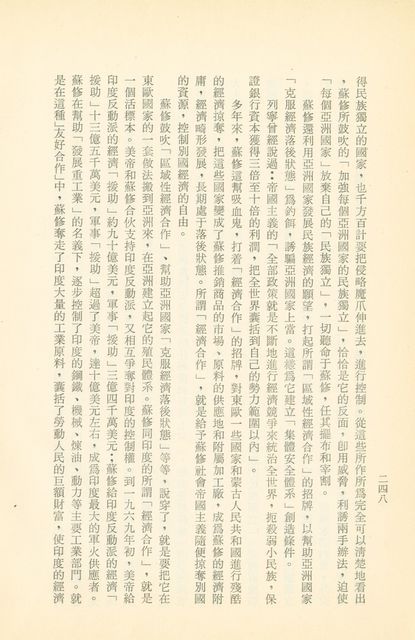 二四八
得民族獨立的國家，也千方百計要把侵略魔爪伸進去，進行控制。從這些所作所爲完全可以清楚地看出
，蘇修所鼓吹的「加強每個亞洲國家的民族獨立」，恰恰是它的反面，即用威脅，利誘兩手辦法，迫使
「每個亞洲國家」放棄自己的「民族獨立」，一切聽命于蘇修，任其擺布和宰割。
蘇修還利用亞洲國家發展民族經濟的願望，打起所謂「區域性經濟合作」的招牌，以幫助亞洲國家
「克服經濟落後狀態」爲釣餌，誘騙亞洲國家上當。這樣爲它建立「集體安全體系」創造條件。
列寧曾經說過：帝國主義的「全部政策就是不斷地進行經濟競爭來統治全世界，扼殺弱小民族，保
證銀行資本獲得三倍至十倍的利潤，把全世界囊括到自己的勢力範圍以內」。
多年來，蘇修這幫吸血鬼，打着「經濟合作」的招牌，對東歐一些國家和蒙古人民共和國進行殘酷
的經濟掠奪，把這些國家變成了蘇修推銷商品的市場、原料的供應地和附屬加工廠，成爲蘇修的經濟附
庸，經濟畸形發展，長期處于落後狀態。所謂「經濟合作」，就是給予蘇修社會帝國主義隨便掠奪別國
的資源，控制別國經濟的自由。
蘇修鼓吹「區域性經濟合作」、幫助亞洲國家「克服經濟落後狀態」等等，說穿了，就是要把它在
東歐國家的一套做法搬到亞洲來，在亞洲建立起它的殖民體系。蘇修同印度的所謂「經濟合作」，就是
一個活標本。美帝和蘇修合伙支持印度反動派，又相互爭奪對印度的控制權。到一九六九年初，美帝給
印度反動派的經濟「援助」約九十億美元，軍事「援助」三億四千萬美元；蘇修給印度反動派的經濟「
援助」十三億五千萬美元，軍事「援助」超過了美帝，達十億美元左右，成爲印度最大的軍火供應者。
蘇修在幫助「發展重工業」的名義下，逐步控制了印度的鋼鐵、機械、煉油、動力等主要工業部門。就
是在這種「友好合作」中，蘇修奪走了印度大量的工業原料，囊括了勞動人民的巨額財富，使印度的經濟